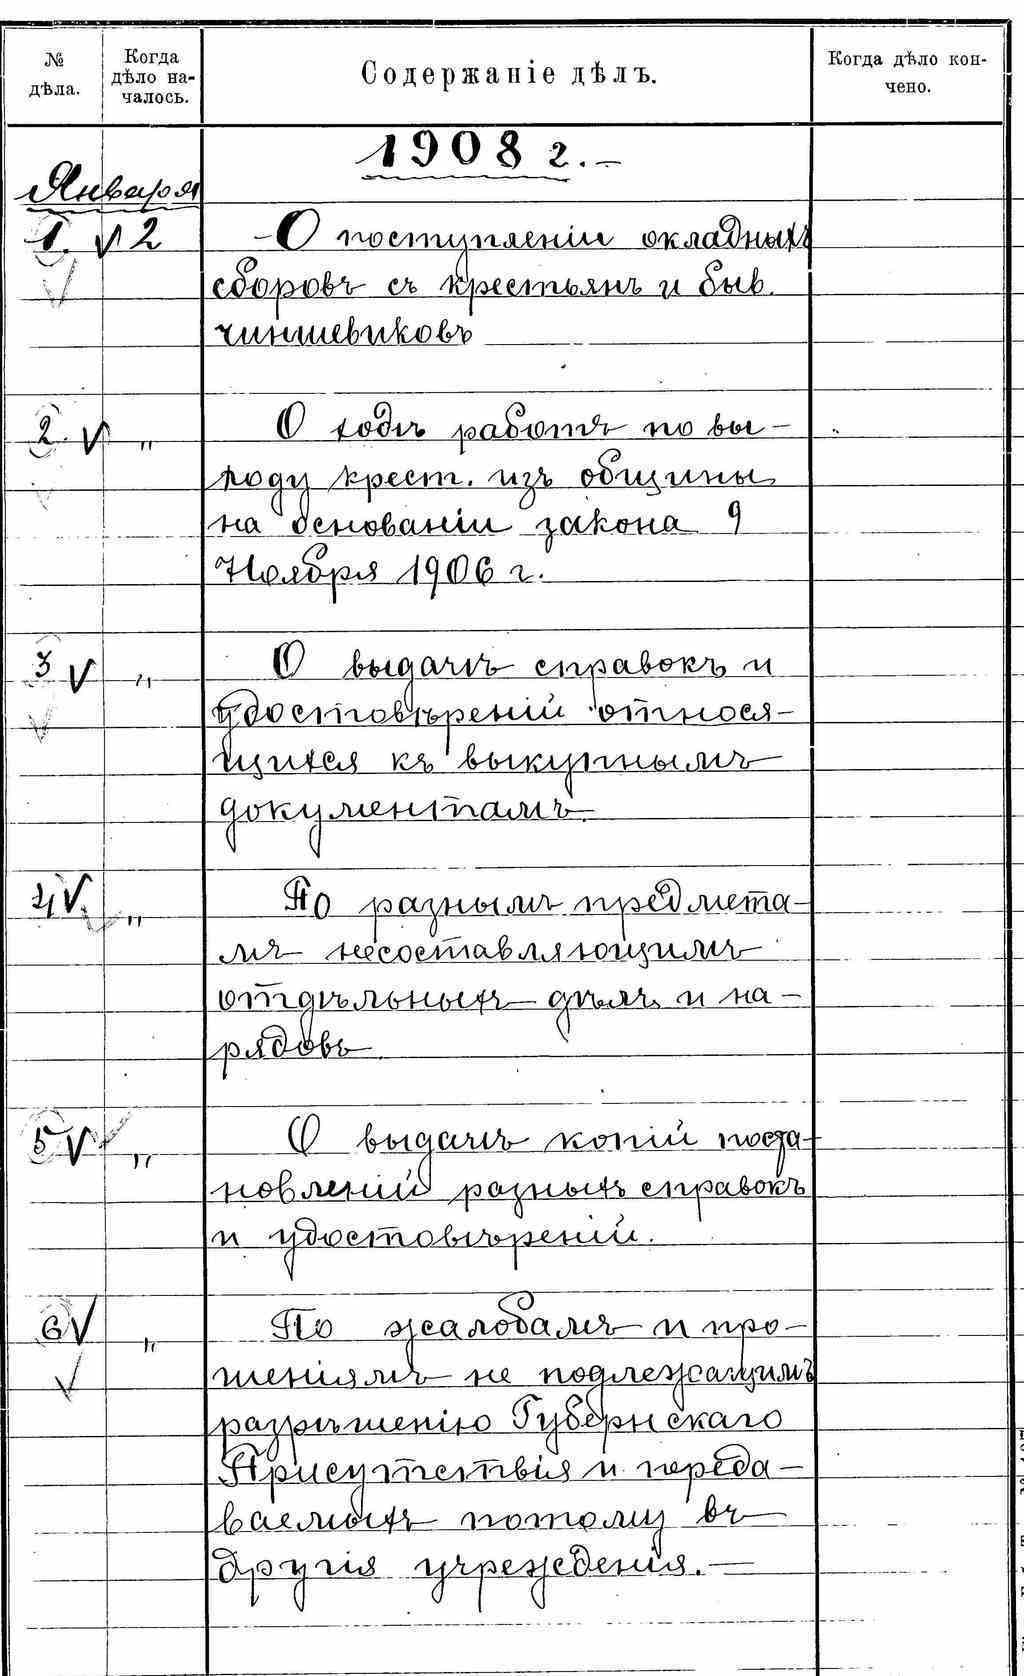 № дѣла.
Когда дѣло на-
чалось.
Содержаніе дѣлъ.
Когда дѣло кон-
чено.
1908 г.-
Января
1. V 2 О поступленіи окладныхъ
сборовъ съ крестьянъ и быв.
чиншевиковъ
2. V „ О ходѣ работъ по вы-
ходу крест. изъ общины
на основаніи закона 9
Ноября 1906 г.
3 V „ О выдачѣ справокъ и
удостовѣреній относя-
щихся къ выкупнымъ
документамъ.
4 V. „ По разнымъ предмета-
мъ несоставляющимъ
отдѣльныхъ дѣлъ и на-
рядовъ
5 V „ О выдачѣ копій поста-
новленій разныхъ справокъ
и удостовѣреній.
6 V „ По жалобамъ и про-
шеніямъ не подлежащимъ
разрѣшенію Губернскаго
Присутствія и переда-
ваемыхъ потому въ
другія учрежденія.-